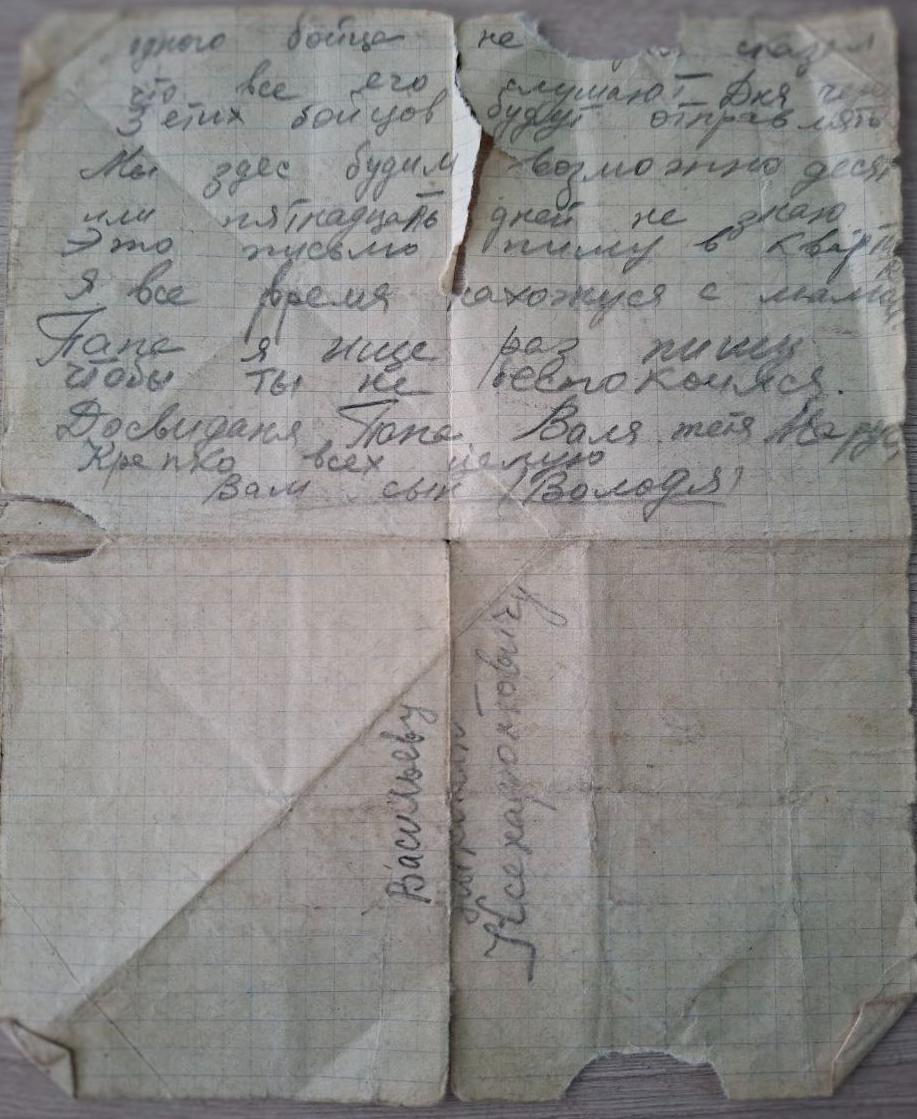 одного бойца не сказал
что все его слушают Дня через
3 етих бойцов будут отправлять
Мы здес будим возможно десят
или пятнадцать дней не знаю
Это письмо пишу в кварти
Я все время нахожуся с мамай
Папа я ище раз пишу
чтобы ты не беспокоился.
Досвиданя Папа, Валя тетя Маруся
Крепко всех целую
Вам сын Володя
Васильеву